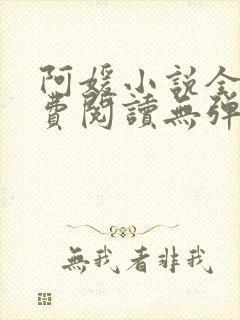 阿媛小说全
費閱讀無彈
無我者非我